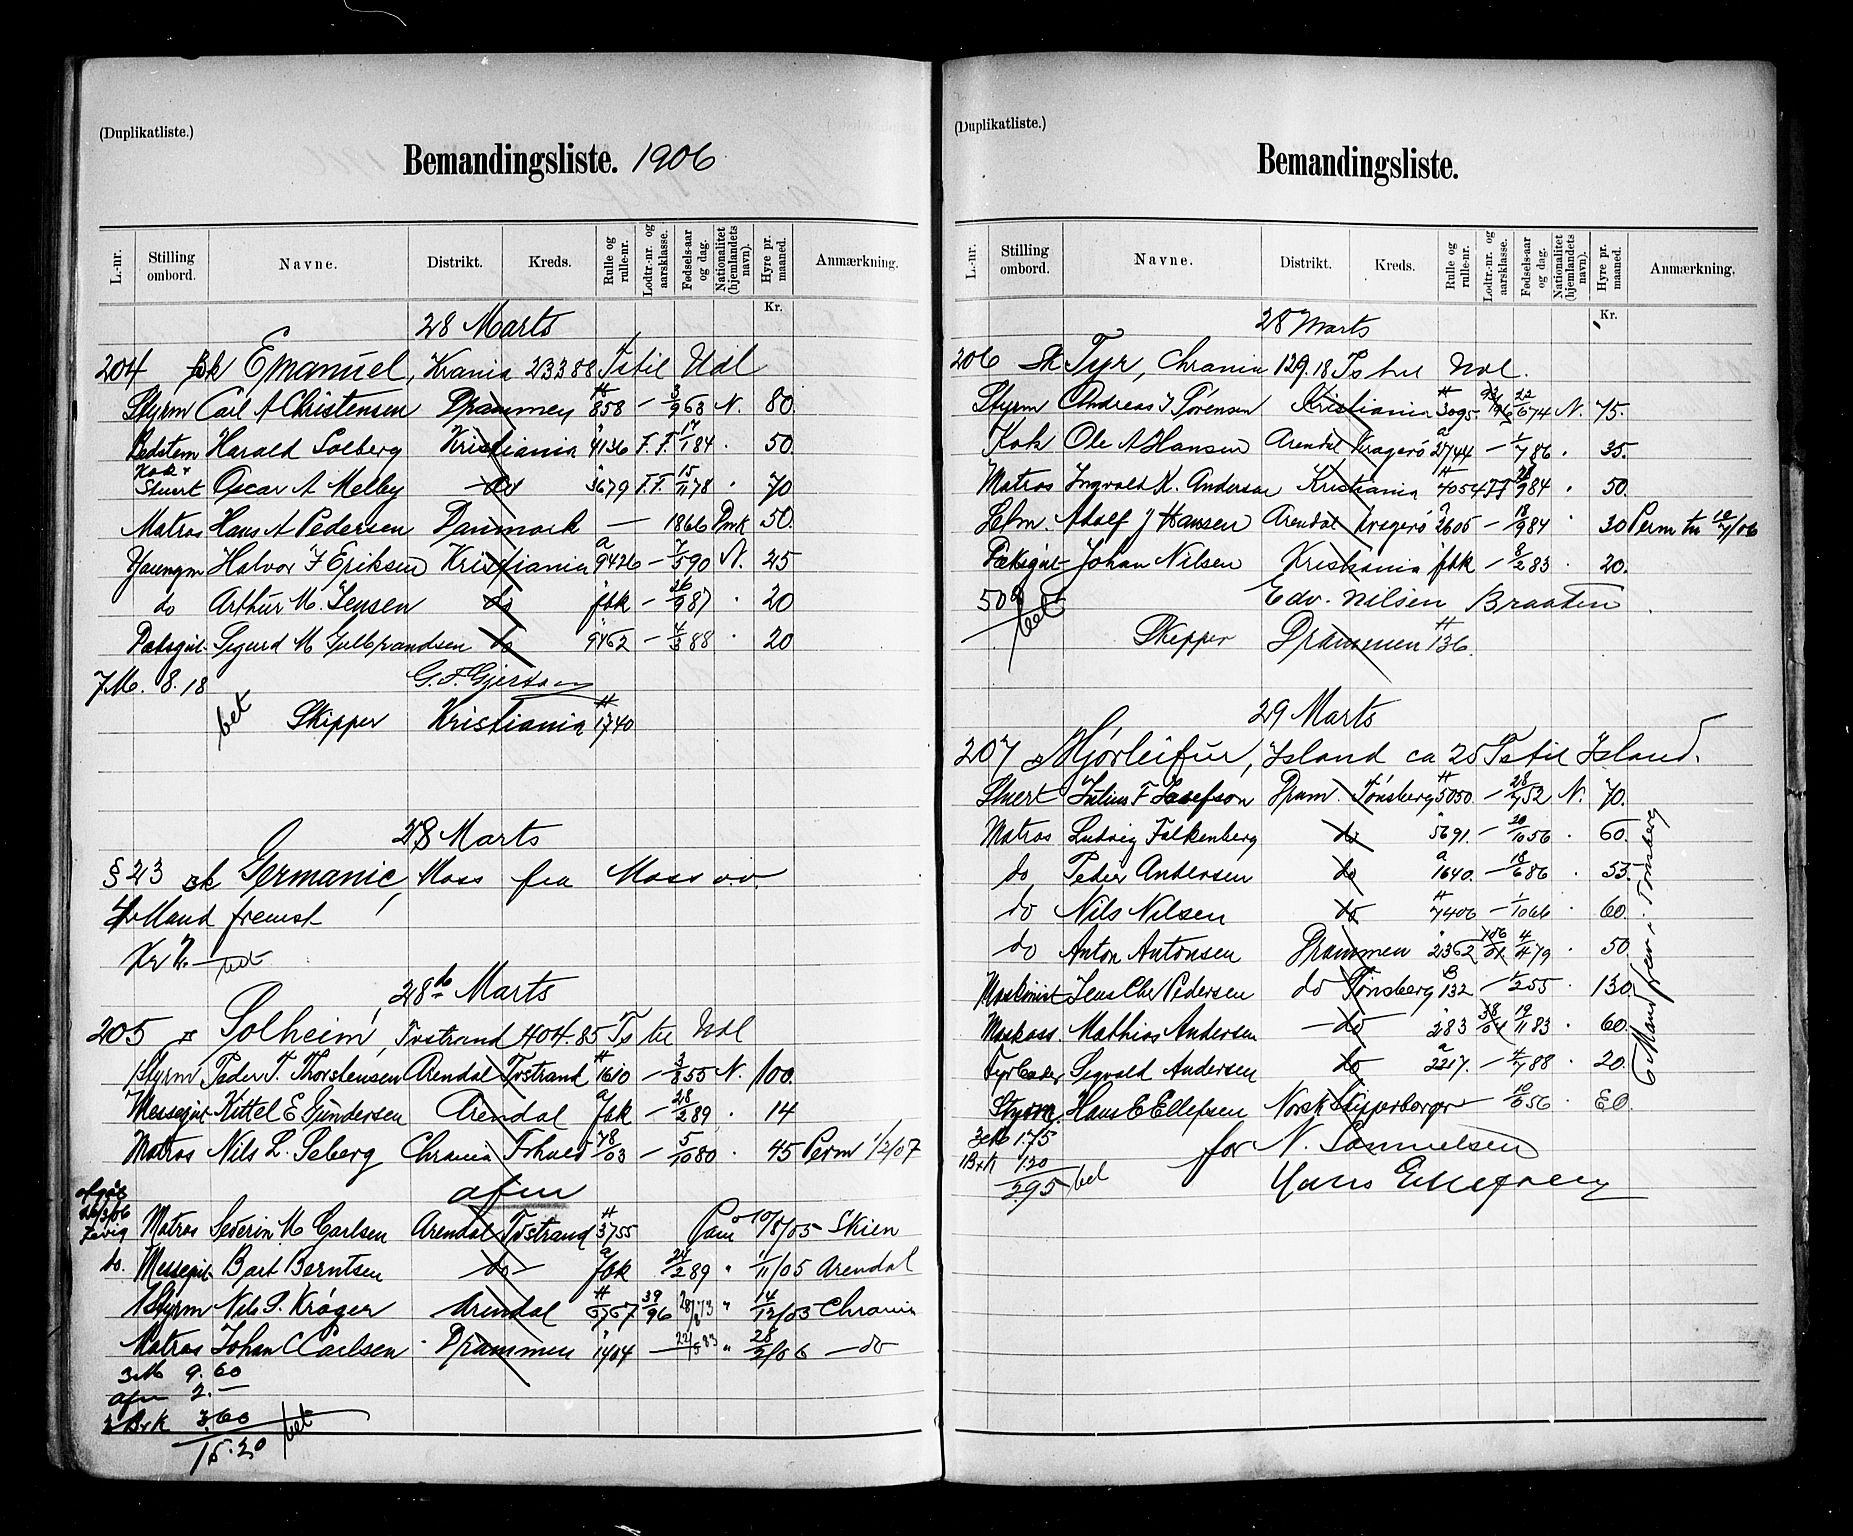 (Duplikatliste.)
Bemandingsliste. 1906
L.-nr. Stilling ombord. Navne. Distrikt. Kreds. Rulle og rulle-nr. Lodtr.-nr. og aarsklasse. Fødsels-aar og dag. Nationalitet (hjemlandets navn). Hyre pr. maaned. Anmærkning.
Kr.
28 Marts
204 Emanuel, Krania 233 88 Ts til Udl
Styrm Carl A Christensen Drammen H 858 — 3/9 63 N. 80.
Bedstem Harald Solberg Kristiania 4136 F.F. 17/1 84 . 50.
Kok + Stuert Oscar A Melby do 3679 F.F. 15/11 78 " 70
Matros Hans A Pedersen Danmark — 1866 Dmk 50.
Youngm Halvor F Eriksen Kristiania a 9426 — 7/5 90 N. 25
do Arthur M. Jensen do fbk — 26/9 87 . 20
Dæksgut Sigurd M Gulbrandsen do 9462 — 4/3 88 . 20
7 M. 8.18 G. F. Gjertsen
bet Skipper Kristiania H 1740
28 Marts
§ 23 sk Germanic, Moss fra Moss
4 Mand fremst
Kr 2. — bet
28de Marts
205 Solheim, Tvstrand 404.85 Ts til Udl
1 Styrm Peder T. Thorstensen Arendal Tvstrand H 1610 — 3/8 55 N. 100.
Messegut Kittel E Gundersen Arendal a fbk — 28/2 89 . 14
Matros Nils L. Seberg Chrania 78/03 — 5/10 80 . 45 Perm 1/2/07
afm
afgåt 26/3/06 Matros Severin M Carlsen Arendal Tvstrand H 3755 Paam 10/8/05 Skien
do. Messegut Bart Berntsen do a fbk 24/2 89 " 1/11/05 Arendal
1 Styrm Nils P. Krøger Arendal H 6767 39/96 28/8 73 " 14/12/03 Chrania
Matros Johan C Carlsen Drammen " 1404 — 22/5 83 " 28/2/06 do
3 M 9.60
afm 2. —
3 Brk 3.60 bet
15.20
(Duplikatliste.)
Bemandingsliste.
L.-nr. Stilling ombord. Navne. Distrikt. Kreds. Rulle og rulle-nr. Lodtr.-nr. og aarsklasse. Fødsels-aar og dag. Nationalitet (hjemlandets navn). Hyre pr. maaned. Anmærkning.
Kr.
28 Marts
206 Sk Tyr, Chrania 129.18 Ts til Udl.
Styrm Andreas J Sørensen Kristiania H 3095 22/6 74 N. 75.
Kok Ole A Hansen Arendal Kragerø a 2744 — 1/7 86 . 35.
Matros Ingvald K. Andersen Kristiania H 4054 FF 28/9 84 " 50.
Adolf J Hansen Arendal Kragerø a 2605 — 18/9 84 " 30 Perm til 10/7/06
Dæksgut Johan Nilsen Kristiania fbk — 8/2 83 . 20.
50 bet Edv. Nilsen Braaten
Skipper Drammen H 136.
29 Marts
207 Hjørleifur, Island ca 25 Ts til Island.
Stuert Julius F Josefson Dram. Tønsberg H 5050 — 28/7 52 N. 70.
Matros Ludvig Falkenberg do " 5691. — 20/10 56 . 60.
do Peder Andersen do a 1640. — 18/6 86 . 55.
do Nils Nilsen do H 7406 — 1/10 66 . 60.
do Anton Antonsen Drammen " 2362 4/4 79 . 50.
Maskinist Jens Chr Pedersen do Tønsberg B 132 — 1/2 55 . 130.
Maskass. Mathias Andersen do " 283 38/04 19/11 83 . 60.
Fyrbøder Sigvald Andersen do a 2217. — 4/7 88 . 20.
Styrm. Hans E Ellefsen Norsk Skipperborger — 10/6 56 . 80.
6 Mand frem i Tønsberg
3 M 175 for N. Samuelsen
1 Brk 120 Hans Ellefsen
295 bet